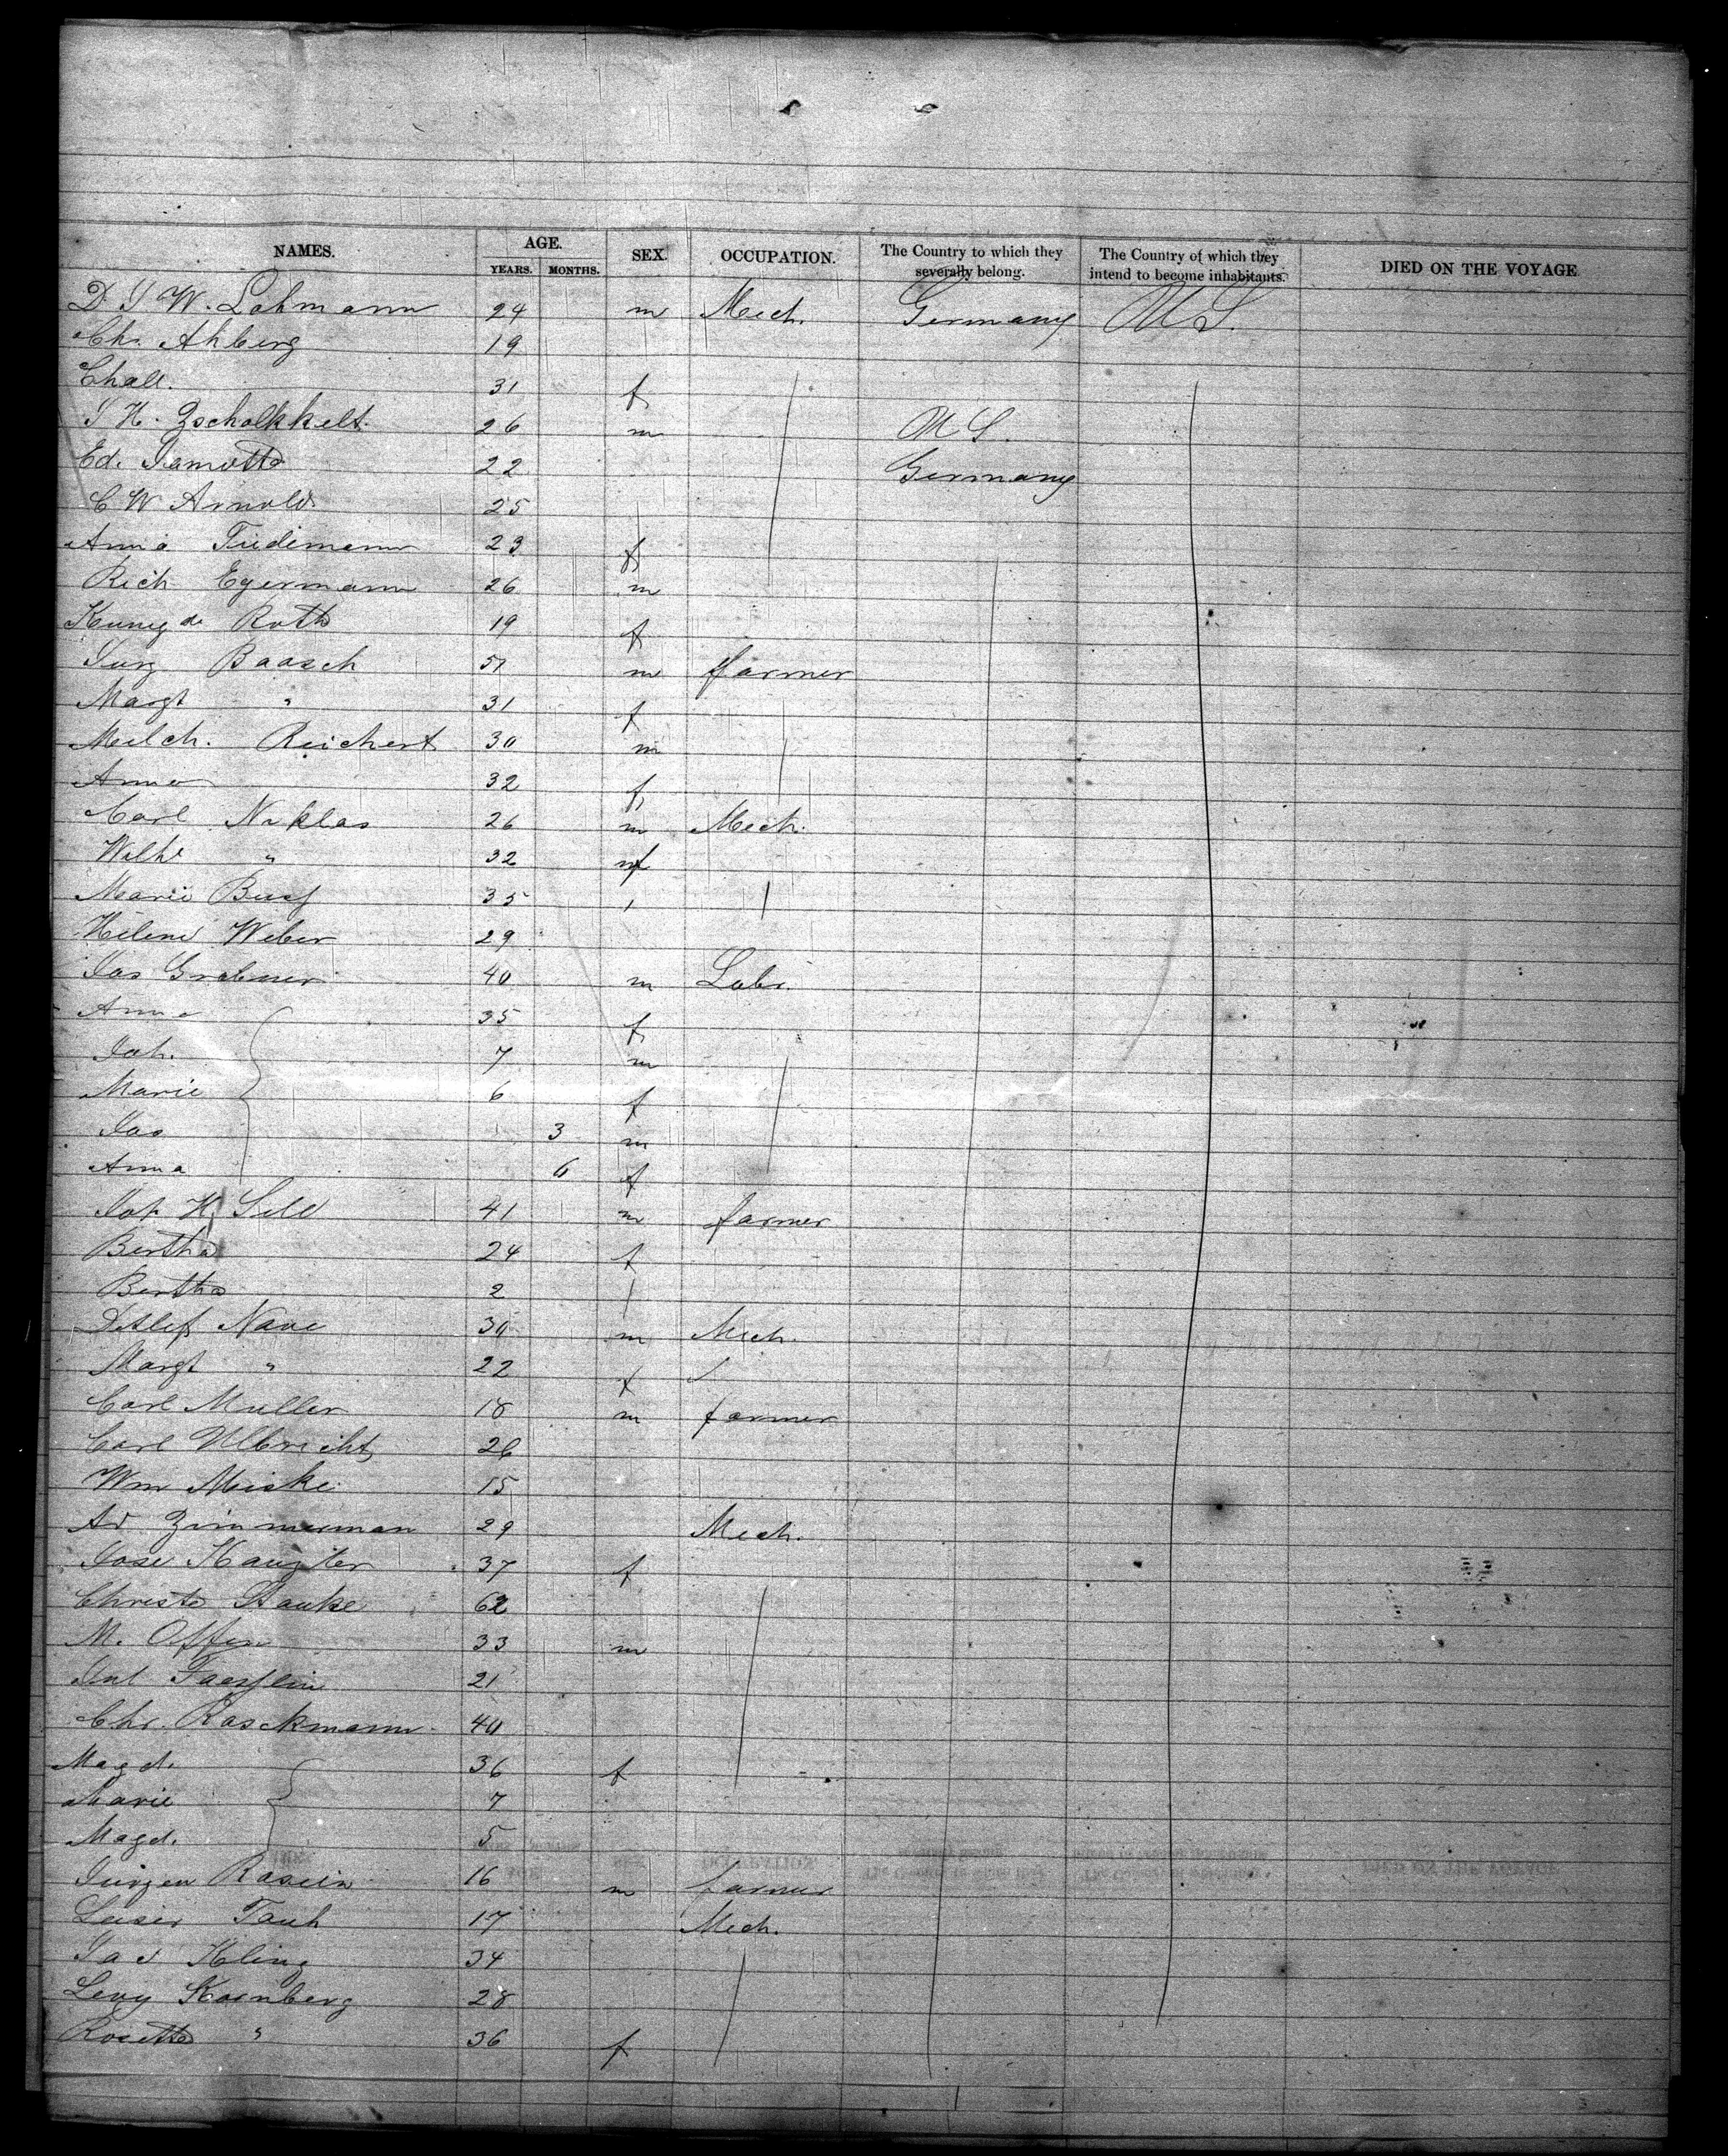 NAMES. AGE. SEX. OCCUPATION. The Country to which they severally belong. The Country of which they intend to become inhabitants. DIED ON THE VOYAGE
YEARS. MONTHS.
D. J W. Lohmann 24 m Mech. Germany U S.
Chr. Ahberg 19
31 f
J H. Zscholkkelt. 26 m U S.
Ed. 22 Germany
C W Arnold 25
Anna Tiedemann 23 f
Rich Egermann 26 m
Kunigde Roth 19 f
Jurg Baasch 51 m farmer
Margt " 31 f
Melch. Reichert 30 m
Anna 32 f
Carl Niklas 26 m Mech.
Wilhe " 32 f
Marie 35
Helene Weber 29
Jos Grabner 40 m Labr.
Anna 35 f
Joh. 7 m
Marie 6 f
Jos 3 m
Anna 6 f
41 m farmer
Bertha 24 f
Bertha 2
Detlef Nave 30 m Mech.
Margt " 22 f
Carl Muller 18 m farmer
Carl Ulbricht 26
Wm Miske 15
Ad Zimmerman 29 Mech.
37 f
62
M. Offen 33 m
21
Chr. Rasckmann 40
Magd. 36 f
Marie 7
Magd. 5
Jurgen 16 m farmer
17 Mech.
Kling 34
Levy Kornberg 28
Rosetta " 36 f